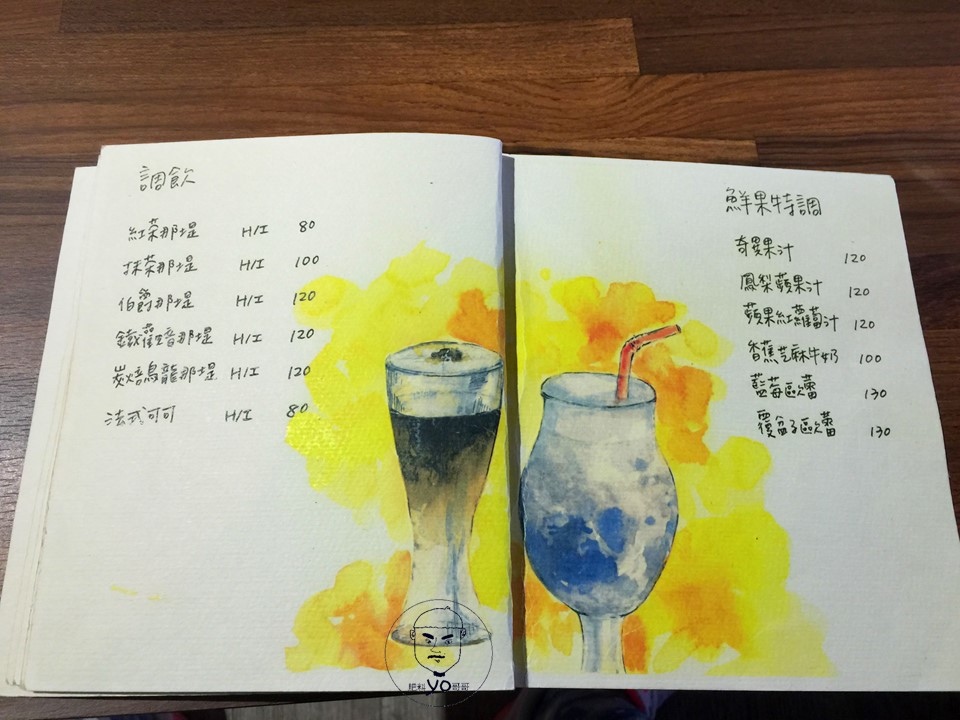 調飲
紅茶那堤 H/I 80
抹茶那堤 H/I 100
伯爵那堤 H/I 120
鐵觀音那堤 H/I 120
炭焙烏龍那堤 H/I 120
法式可可 H/I 80
鮮果特調
奇異果汁 120
鳳梨蘋果汁 120
蘋果紅蘿蔔汁 120
香蕉芝麻牛奶 100
藍莓歐蕾 130
覆盆子歐蕾 130
肥料YO哥哥